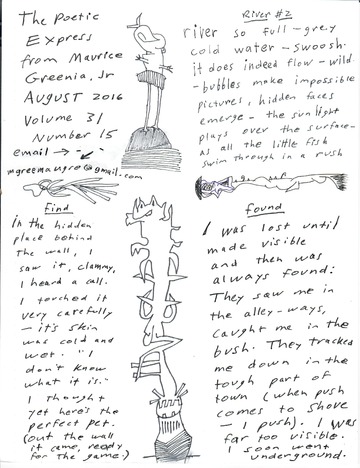 The Poetic
Express
from Maurice
Greenia, Jr
August 2016
Volume 31
Number 15
email → -
mgreemaugre@gmail.com
River #2
river so full - grey
cold water - swoosh.
it does indeed flow - wild
- bubbles make impossible
pictures, hidden faces
emerge - the sunlight
plays over the surface -
as all the little fish
swim through in a rush
Find
In the hidden
place behind
the wall, I
saw it, clammy,
I heard a call.
I touched it
very carefully
- it's skin
was cold and
wet. "I
don't know
what it is."
I thought
yet here's the
perfect pet.
(out the wall
it came, ready
for the game.)
Found
I was lost until
made visible
and then was
always found:
They saw me in
the alley-ways,
caught me in the
bush. They tracked
me down in the
tough part of
town (when push
comes to shove
- I push). I was
far too visible.
I soon went
underground.